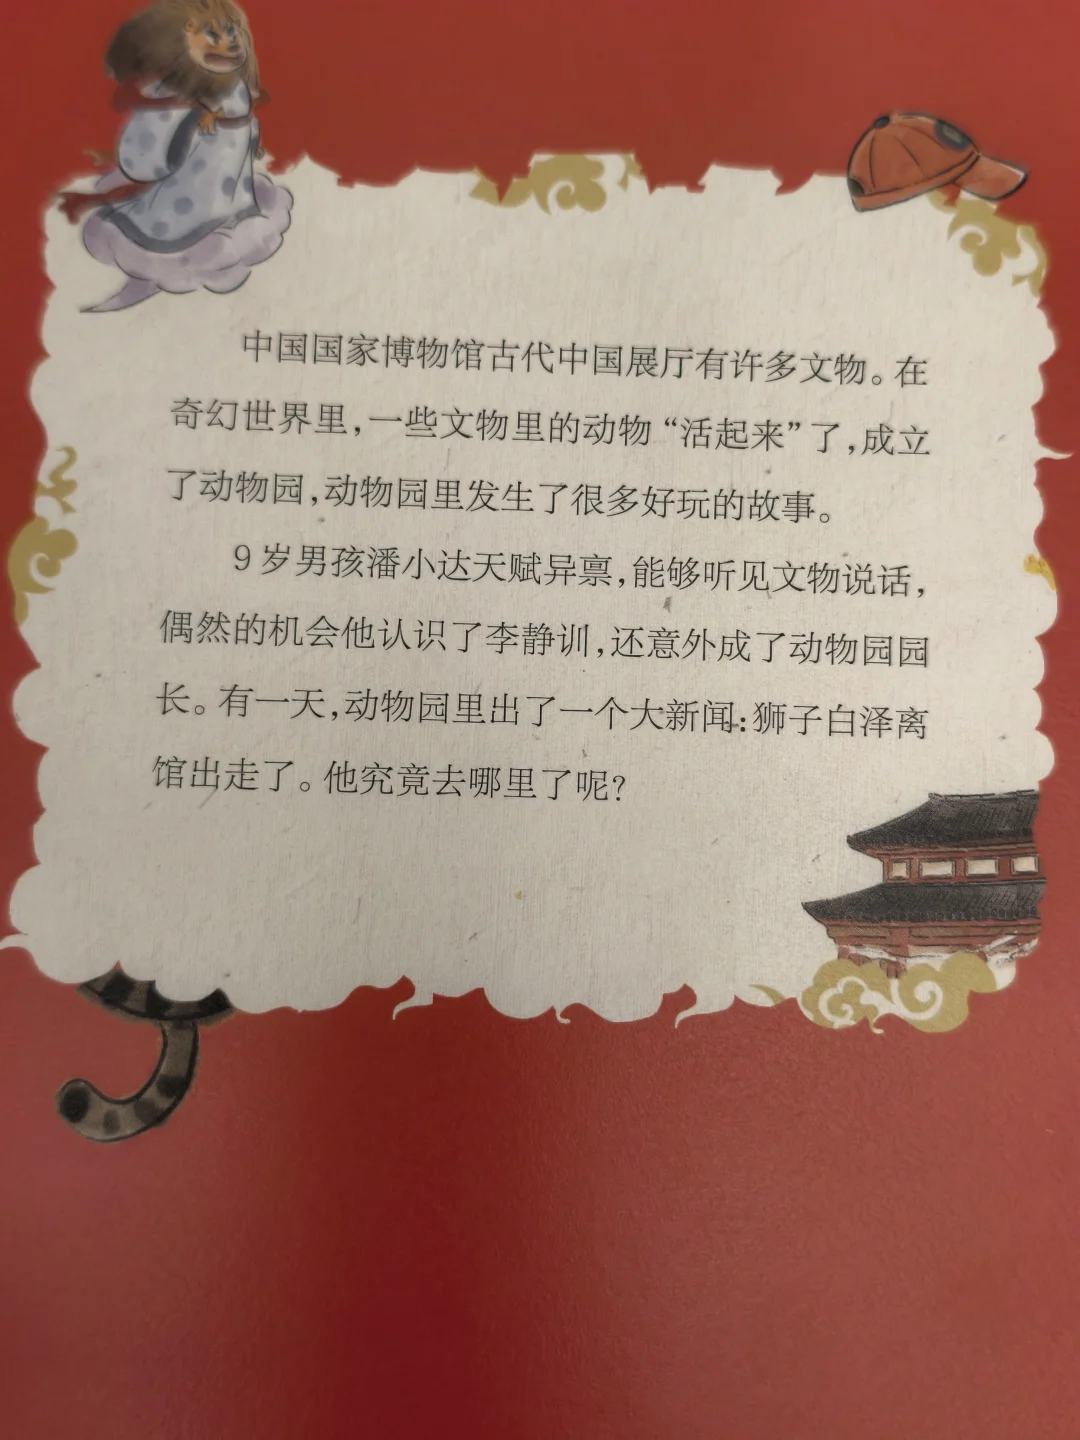 中国国家博物馆古代中国展厅有许多文物。在
奇幻世界里,一些文物里的动物“活起来”了,成立
了动物园,动物园里发生了很多好玩的故事。
9岁男孩潘小达天赋异禀,能够听见文物说话,
偶然的机会他认识了李静训,还意外成了动物园园
长。有一天,动物园里出了一个大新闻:狮子白泽离
馆出走了。他究竟去哪里了呢?